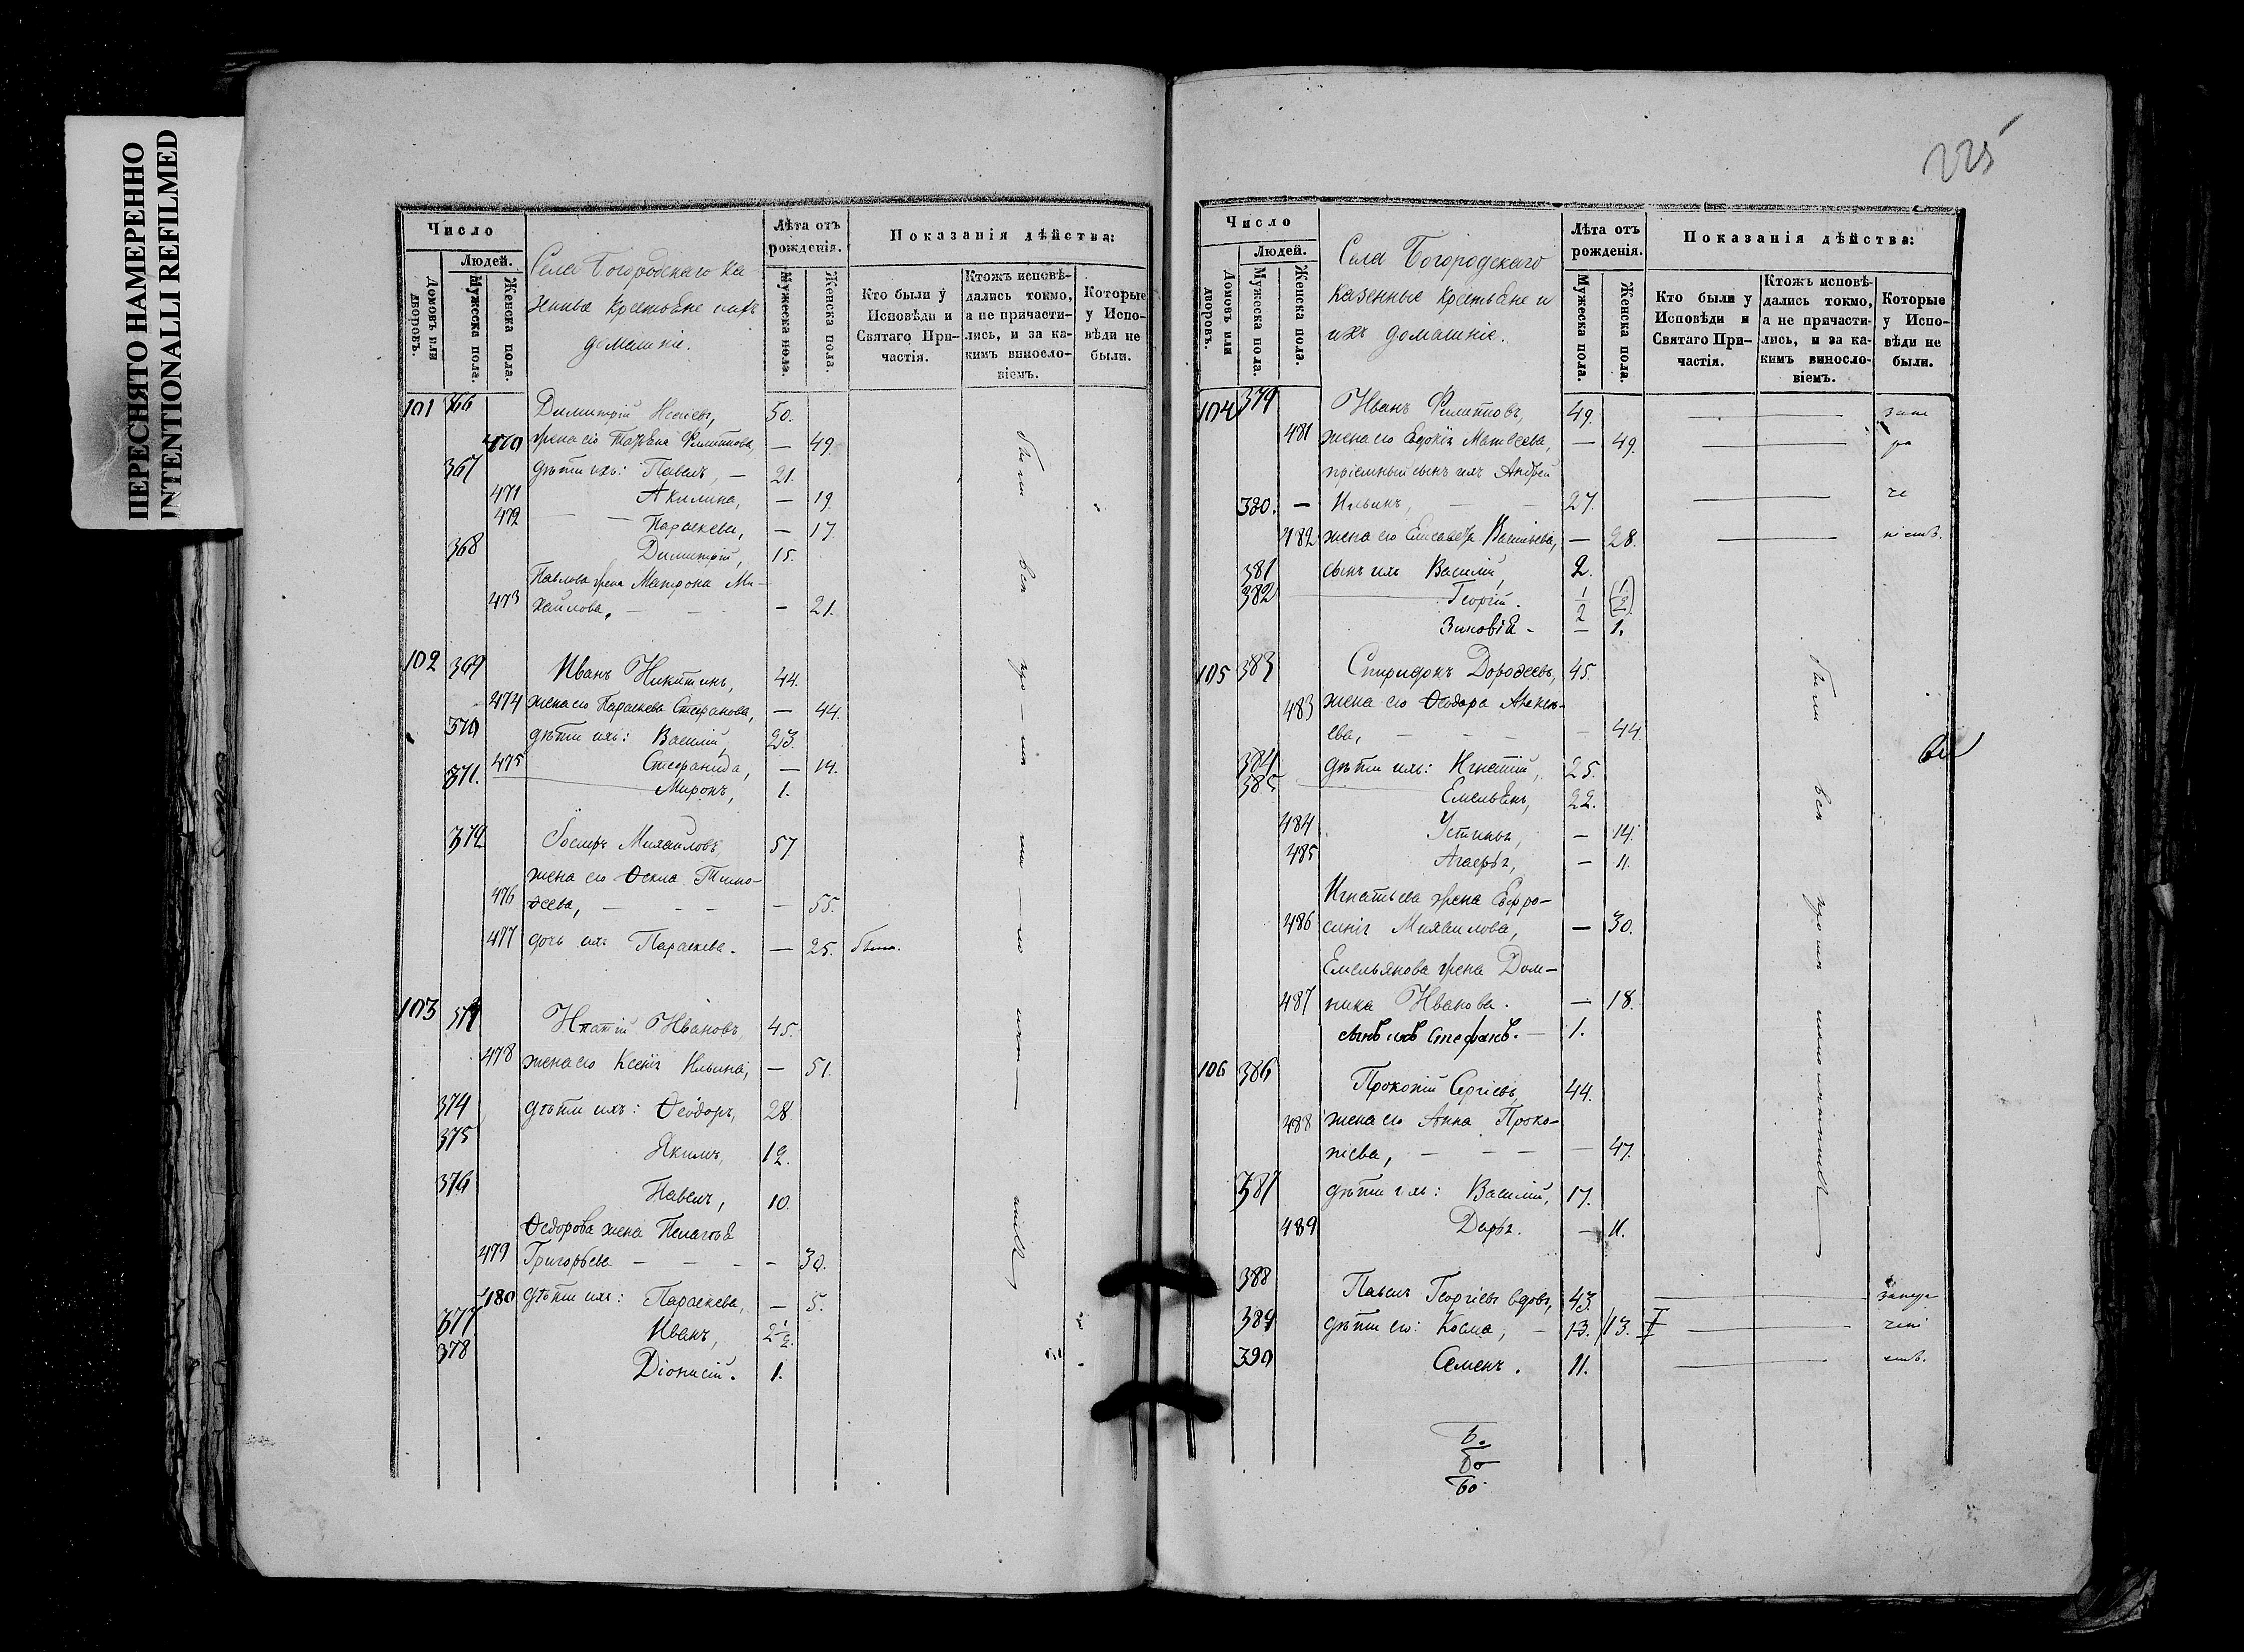 ПЕРЕСНЯТО НАМЕРЕННО
INTENTIONALLI REFILMED
Число
Людей.
Домовъ или дворовъ.
Мужеска пола.
Женска пола.
Села Богородскаго Ка-
зенные Крестьяне и ихъ
домашніе.
Лѣта отъ рожденія.
Мужеска пола.
Женска пола.
Показанія дѣйства:
Кто были у Исповѣди и Святаго При-частія.
Ктожъ исповѣ-дались токмо, а не причасти-лись, и за ка-кимъ виносло-віемъ.
Которые у Испо-вѣди не были.
101 366 Димитрій Исаевъ, 50.
470 жена его Татьяна Филиппова, — 49.
367 дѣти ихъ: Павелъ, — 21.
471 Акилина, — 19.
472 Параскева, — 17.
368 Димитрій, 15.
Павлова жена Матрона Ми-
473 хайлова, — 21.
102 369 Иванъ Никитинъ, 44.
474 жена его Параскева Стефанова, — 44.
370 дѣти ихъ: Василій, 23.
475 Стефанида, — 14.
371. Миронъ, 1.
372 Іосифъ Михайловъ, 57.
жена его Ѳекла Тимо-
476 ѳеева, — 55.
477 дочь ихъ Параскева. — 25. была.
103 Ипатій Ивановъ, 45.
478 жена его Ксенія Ильина, — 51.
374 дѣти ихъ: Ѳеодоръ, 28.
375 Якимъ, 12.
376 Павелъ, 10.
Ѳедорова жена Пелагія
479 Григорьева — 30.
480 дѣти ихъ: Параскева, — 5.
377 Иванъ, 2 1/2.
378 Діонисій. 1.
были всѣ
225
Число
Людей.
Домовъ или дворовъ.
Мужеска пола.
Женска пола.
Села Богородскаго
Казенные Крестьяне и
ихъ домашніе.
Лѣта отъ рожденія.
Мужеска пола.
Женска пола.
Показанія дѣйства:
Кто были у Исповѣди и Святаго При-частія.
Ктожъ исповѣ-дались токмо, а не причасти-лись, и за ка-кимъ виносло-віемъ.
Которые у Испо-вѣди не были.
104 379 Иванъ Филипповъ, 49.
481 жена его Евдокія Матвеева, — 49.
пріемный сынъ ихъ Андрей
380. — Ильинъ, — 27.
482 жена его Елисавета Васильева, — 28.
381 сынъ ихъ Василій, 2.
382 Георгій. 1/2 (1/2)
Зиновія — 1.
105 383 Спиридонъ Дороѳеевъ, 45.
483 жена его Ѳеодора
ева, — 44.
384 дѣти ихъ: Игнатій, 25.
385 Емельянъ, 22.
484 Устинья, — 14.
485 Агафья, — 11.
Игнатьева жена Евфро-
486 синія Михайлова, — 30.
Емельянова жена Дом-
487 ника Иванова. — 18.
сынъ ихъ Стефанъ. — 1.
106 386 Прокопій Сергіевъ, 44.
488 жена его Анна Проко-
піева, — 47.
387 дѣти ихъ: Василій, 17.
489 Дарья. — 11.
388 Павелъ Георгіевъ вдовъ, 43.
389 дѣти его: Козма, — 13. 13.
390 Семенъ. 11.
были всѣ